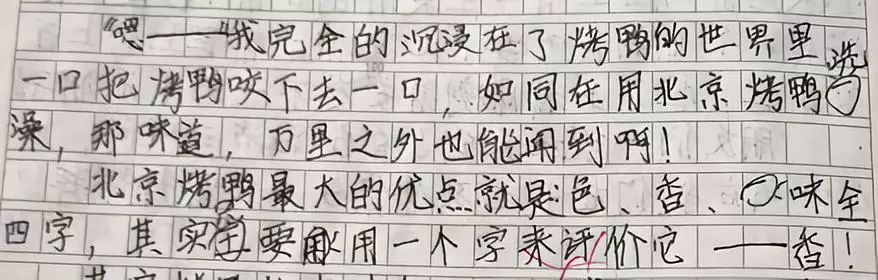 “嗯——”我完全的沉浸在了烤鸭的世界里
一口把烤鸭咬下去一口，如同在用北京烤鸭洗
澡，那味道，万里之外也能闻到啊！
北京烤鸭最大的优点就是：色、香、味全
四字，其实要用一个字来评价它——香！